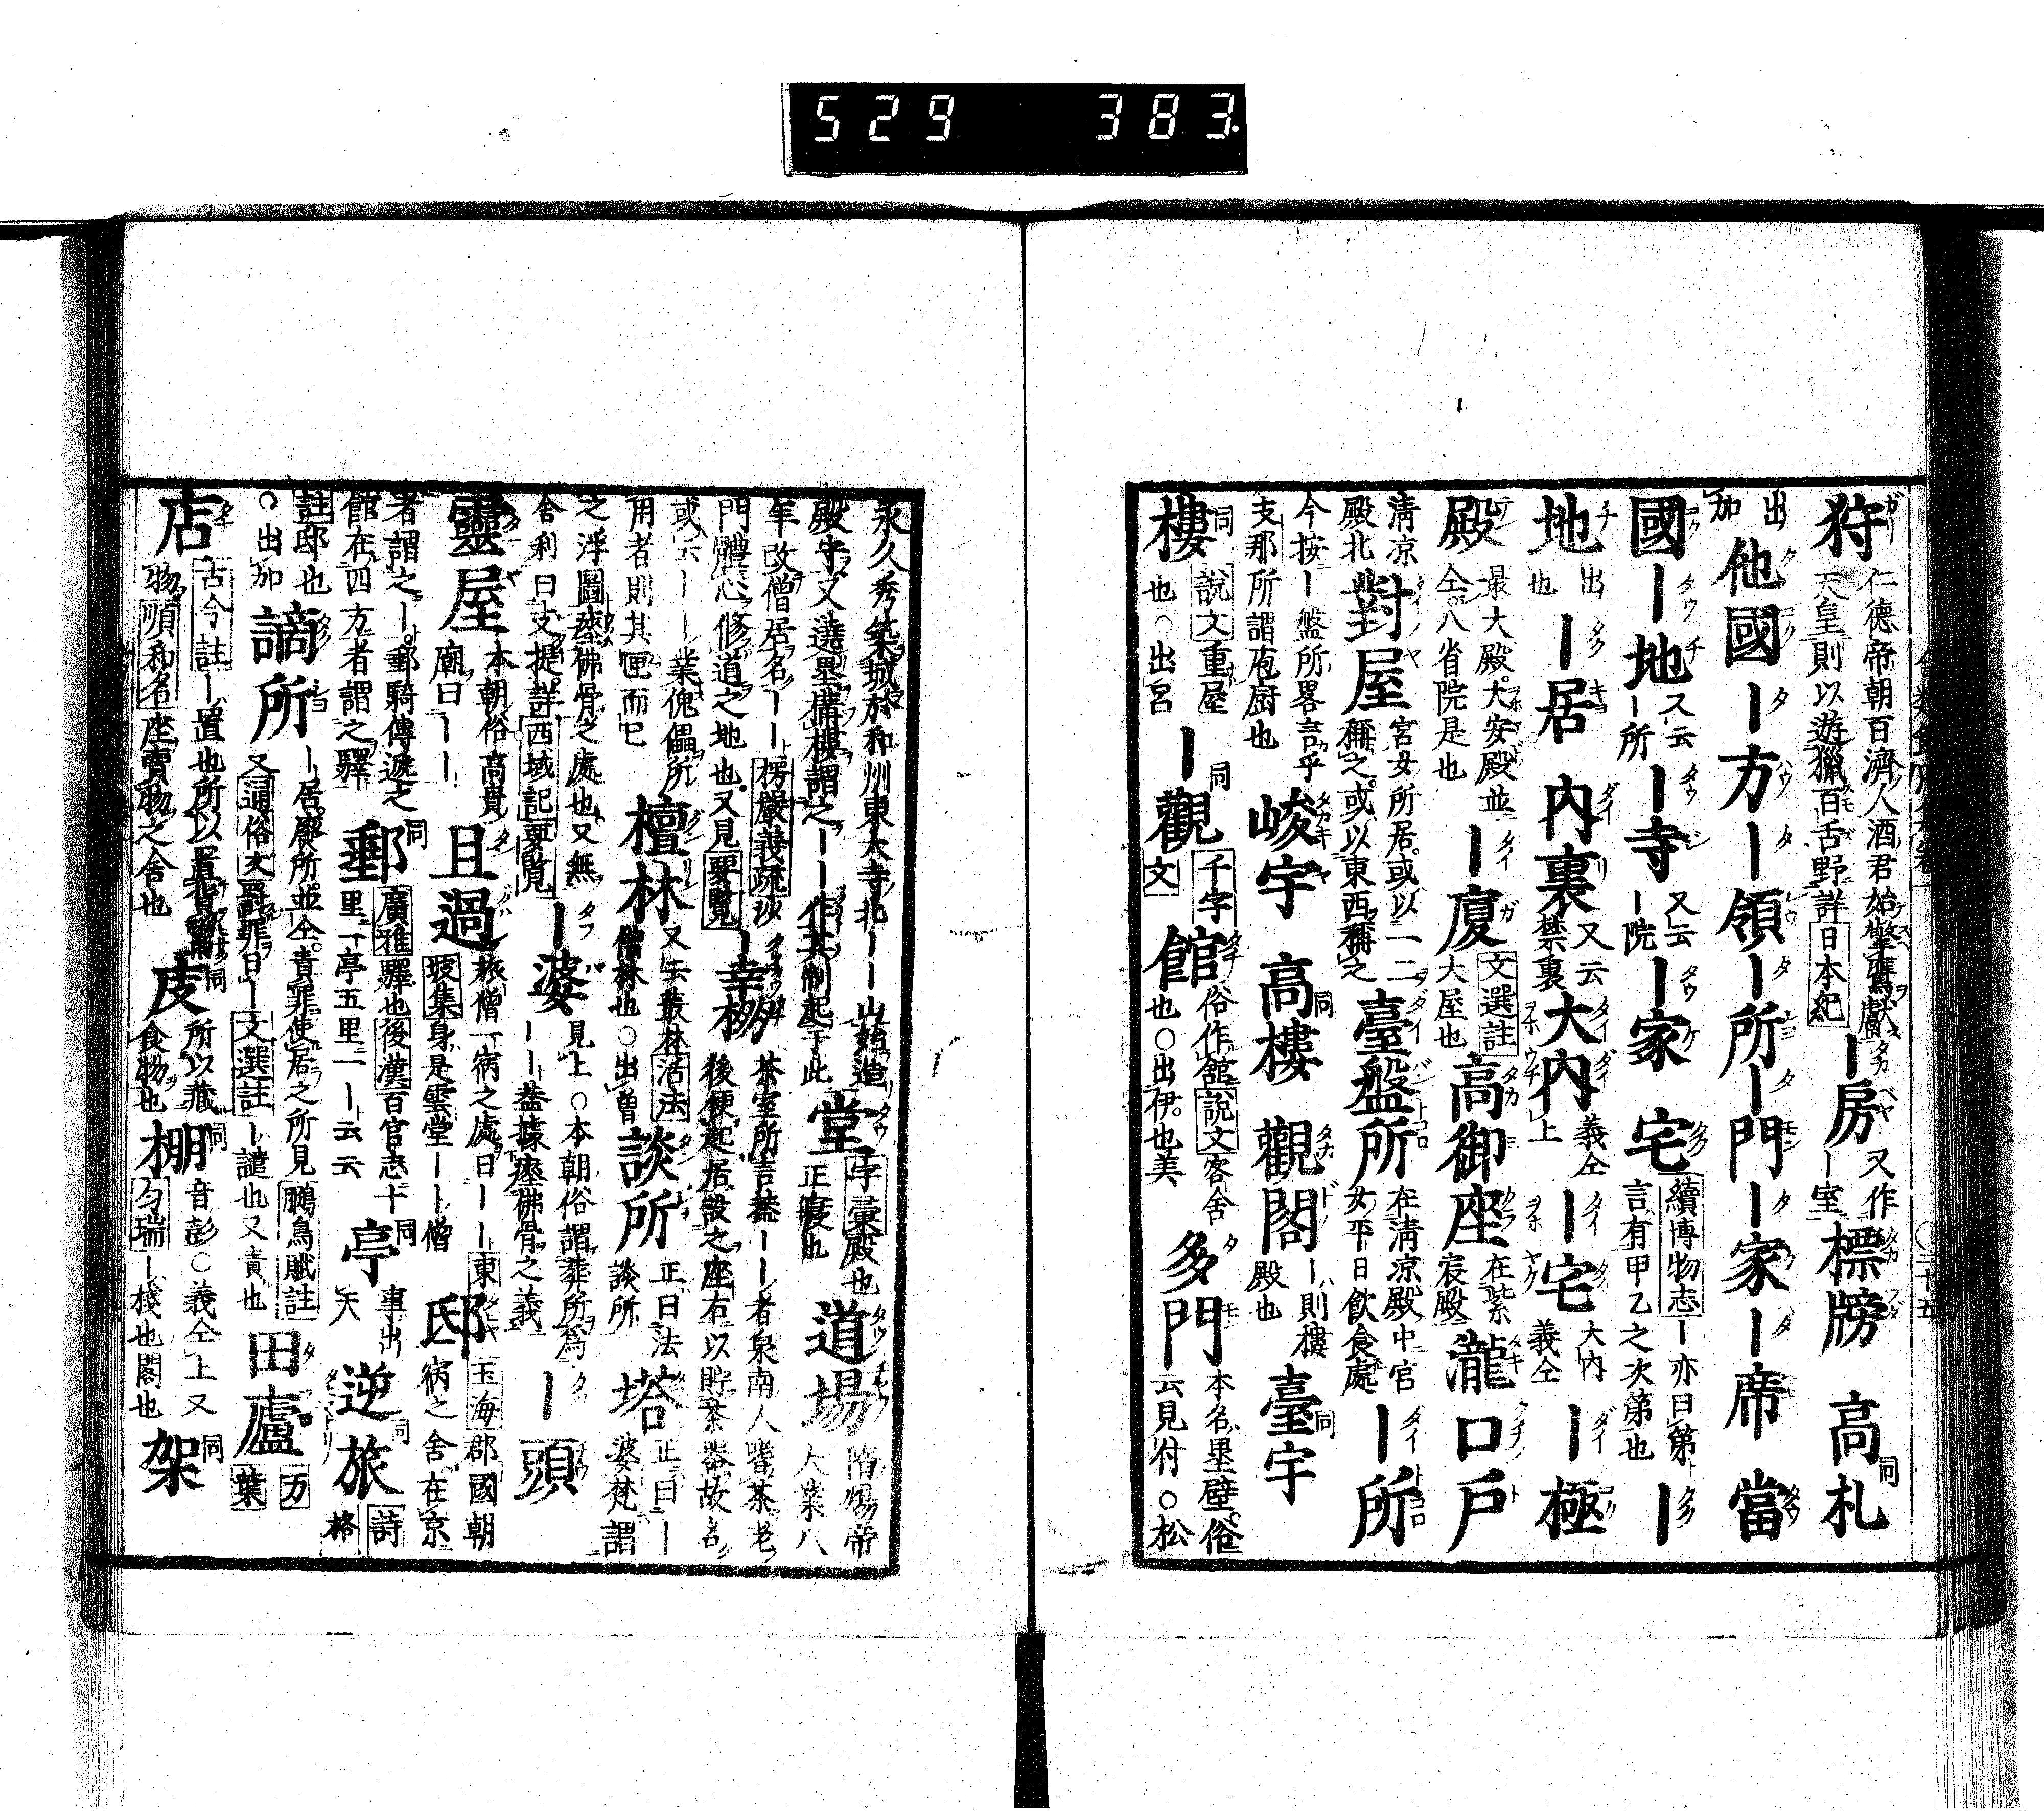 529 383
狩 仁德帝朝百濟人酒君始擎鷹獻 天皇則以遊獵百舌野詳日本紀 ー房 又作ー室 標牓 高札 同
出加 他國 ー方 ー領 ー所 ー門 ー家 ー席 當
國 ー地 又云ー所 ー寺 又云ー院 ー家 宅 續博物志ー亦曰第 言有甲乙之次第也 ー
地 出也 ー居 內裏 又云禁裏 大內 義仝上 ー宅 大內義仝 ー極
殿 最大殿大安殿並仝八省院是也 ー廈 文選註大屋也 高御座 在紫宸殿 瀧口戶
淸凉殿北 對屋 宮女所居或以一二稱之或以東西稱之 臺盤所 在淸凉殿中官女平日飮食處 ー所
今按ー盤所畧言乎 支那所謂庖厨也 峻宇 高樓 同 觀閣 ー則樓殿也 臺宇 同
樓 同 說文重屋也○出呂 ー觀 同 千字文 館 俗作舘說文客舍也○出伊也美 多門 本名墨壁俗云見付○松
永久秀築城於和州東大寺北ーー山始造 堂 字彙殿也正寢也 道場 隋煬帝大業八
殿守又造墨構樓謂之ーー作其制起于此
年改僧居名ーー楞嚴義疏沙門體心修道之地也又見要覽 ー幸棚 茶室所言蓋ーー者泉南人嗜茶老後便起居設之座右以貯茶器故名
或云ーー業傀儡所用者則其匣而已 檀林 又云叢林活法僧林也○出曽 談所 正曰法談所 塔 正曰ー婆梵謂
之浮圖瘞佛骨之處也又無舍利曰支提詳西域記要覽 ー婆 見上○本朝俗謂葬所爲ーー蓋據瘞佛骨之義 ー頭
靈屋 本朝俗高貴廟曰ーー 且過 旅僧一病之處曰ーー東坡集身是雲堂ーー僧 邸 玉海郡國朝病之舍在京
者謂之ー郵騎傳遞之館在四方者謂之驛 郵 同 廣雅驛也後漢百官志十里一亭五里一ー云云 亭 同 事出大 逆旅 同 詩格
註邸也○出加 謫所 ー居廢所並仝責罪使居之所見鵬鳥賦註又通俗文罰罪曰ー文選註ー譴也又責也 田廬 万葉
店 古今註ー置也所以置貨鬻物順和名座賣物之舍也 庋 同 所以藏食物也 棚 同 音彭○義仝上又勻瑞ー棧也閣也 架 同